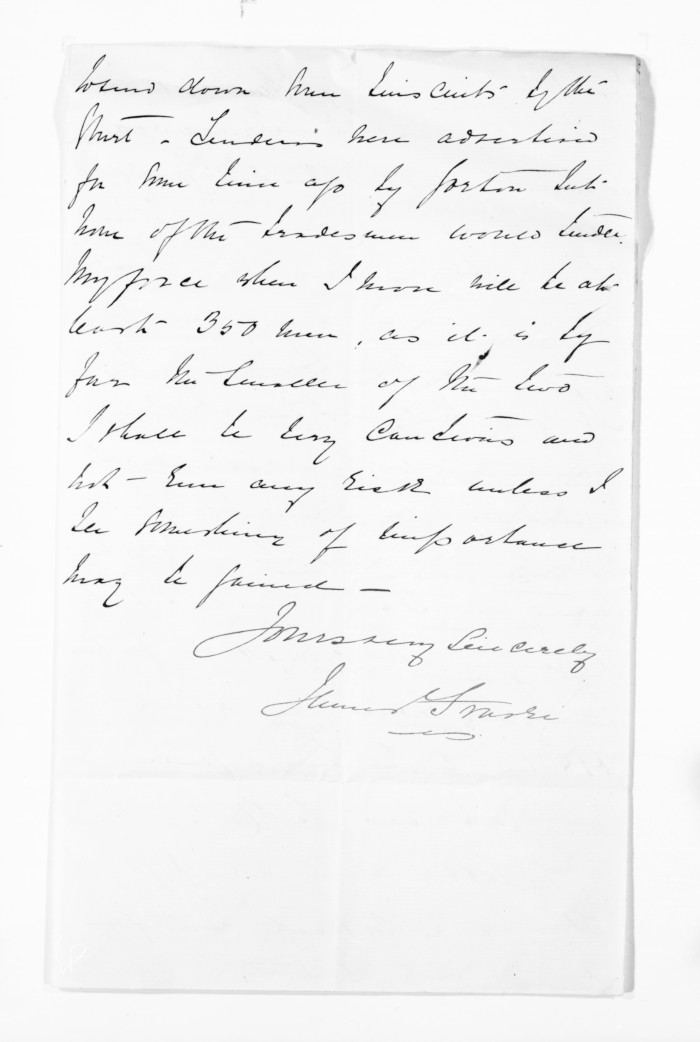 to send down some biscuits by the
Sturt – Tenders were advertised
for some time ago by Gorton but
none of the tradesmen would tender.
My force when I move will be at
least 350 men, as it is by
far the smaller of the two
I shall be very cautious and
not – run any risk unless I
see something of importance
may be gained –
Yours very Sincerely
James Fraser